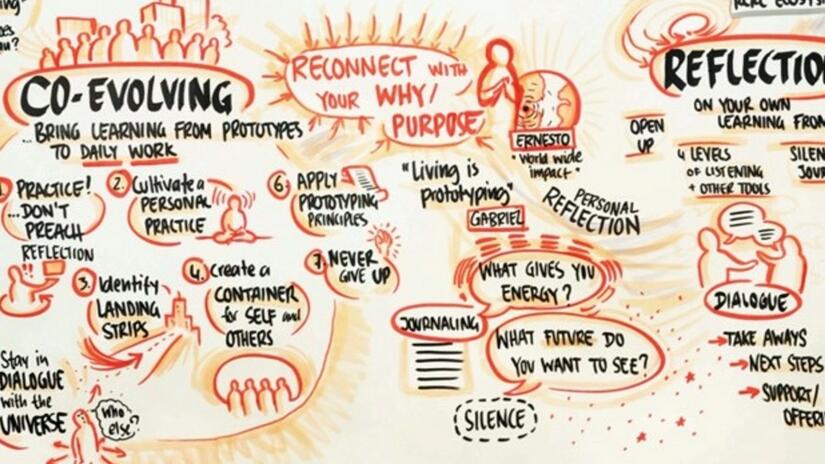 CO-EVOLVING
...BRING LEARNING FROM PROTOTYPES
TO DAILY WORK
1. PRACTICE!
...DON'T
PREACH
REFLECTION
2. Cultivate a
PERSONAL
PRACTICE
6. APPLY
PROTOTYPING
PRINCIPLES
3. Identify
LANDING
STRIPS
4. Create a
CONTAINER
for SELF and
OTHERS
7. NEVER
GIVE UP
Stay in
DIALOGUE
with the
UNIVERSE
Who
else?
RECONNECT WITH
YOUR WHY/
PURPOSE
ERNESTO
"World wide
impact"
"Living is
prototyping"
GABRIEL
PERSONAL
REFLECTION
WHAT GIVES YOU
ENERGY?
JOURNALING
WHAT FUTURE DO
YOU WANT TO SEE?
SILENCE
REFLECTIO
ON YOUR OWN
LEARNING FROM
OPEN
UP
4 LEVELS
OF LISTENING
+ OTHER TOOLS
SILEN
JOUR
DIALOGUE
→TAKE AWAYS
→NEXT STEPS
→SUPPORT/
OFFERI